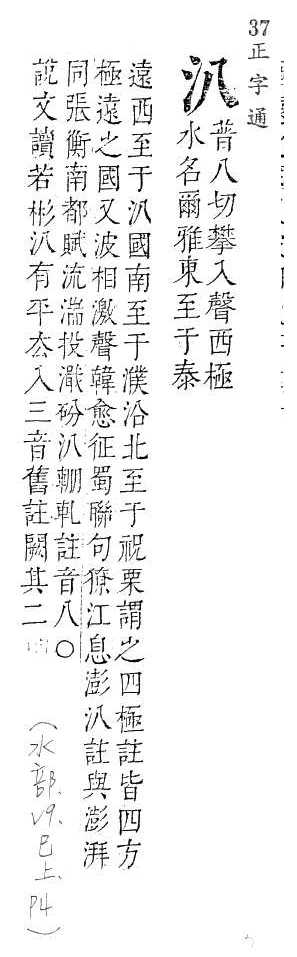 37
正字通
汃
普八切攀入聲西極
水名爾雅東至于泰
遠西至于汃國南至于濮沿北至于祝栗謂之四極註皆四方
極遠之國又波相激聲韓愈征蜀聯句獠江息澎汃註與澎湃
同張衡南都賦流湍投濈砏汃輣軋註音八〇
說文讀若彬汃有平厺入三音舊註闕其二
(水部.巳上.P4)